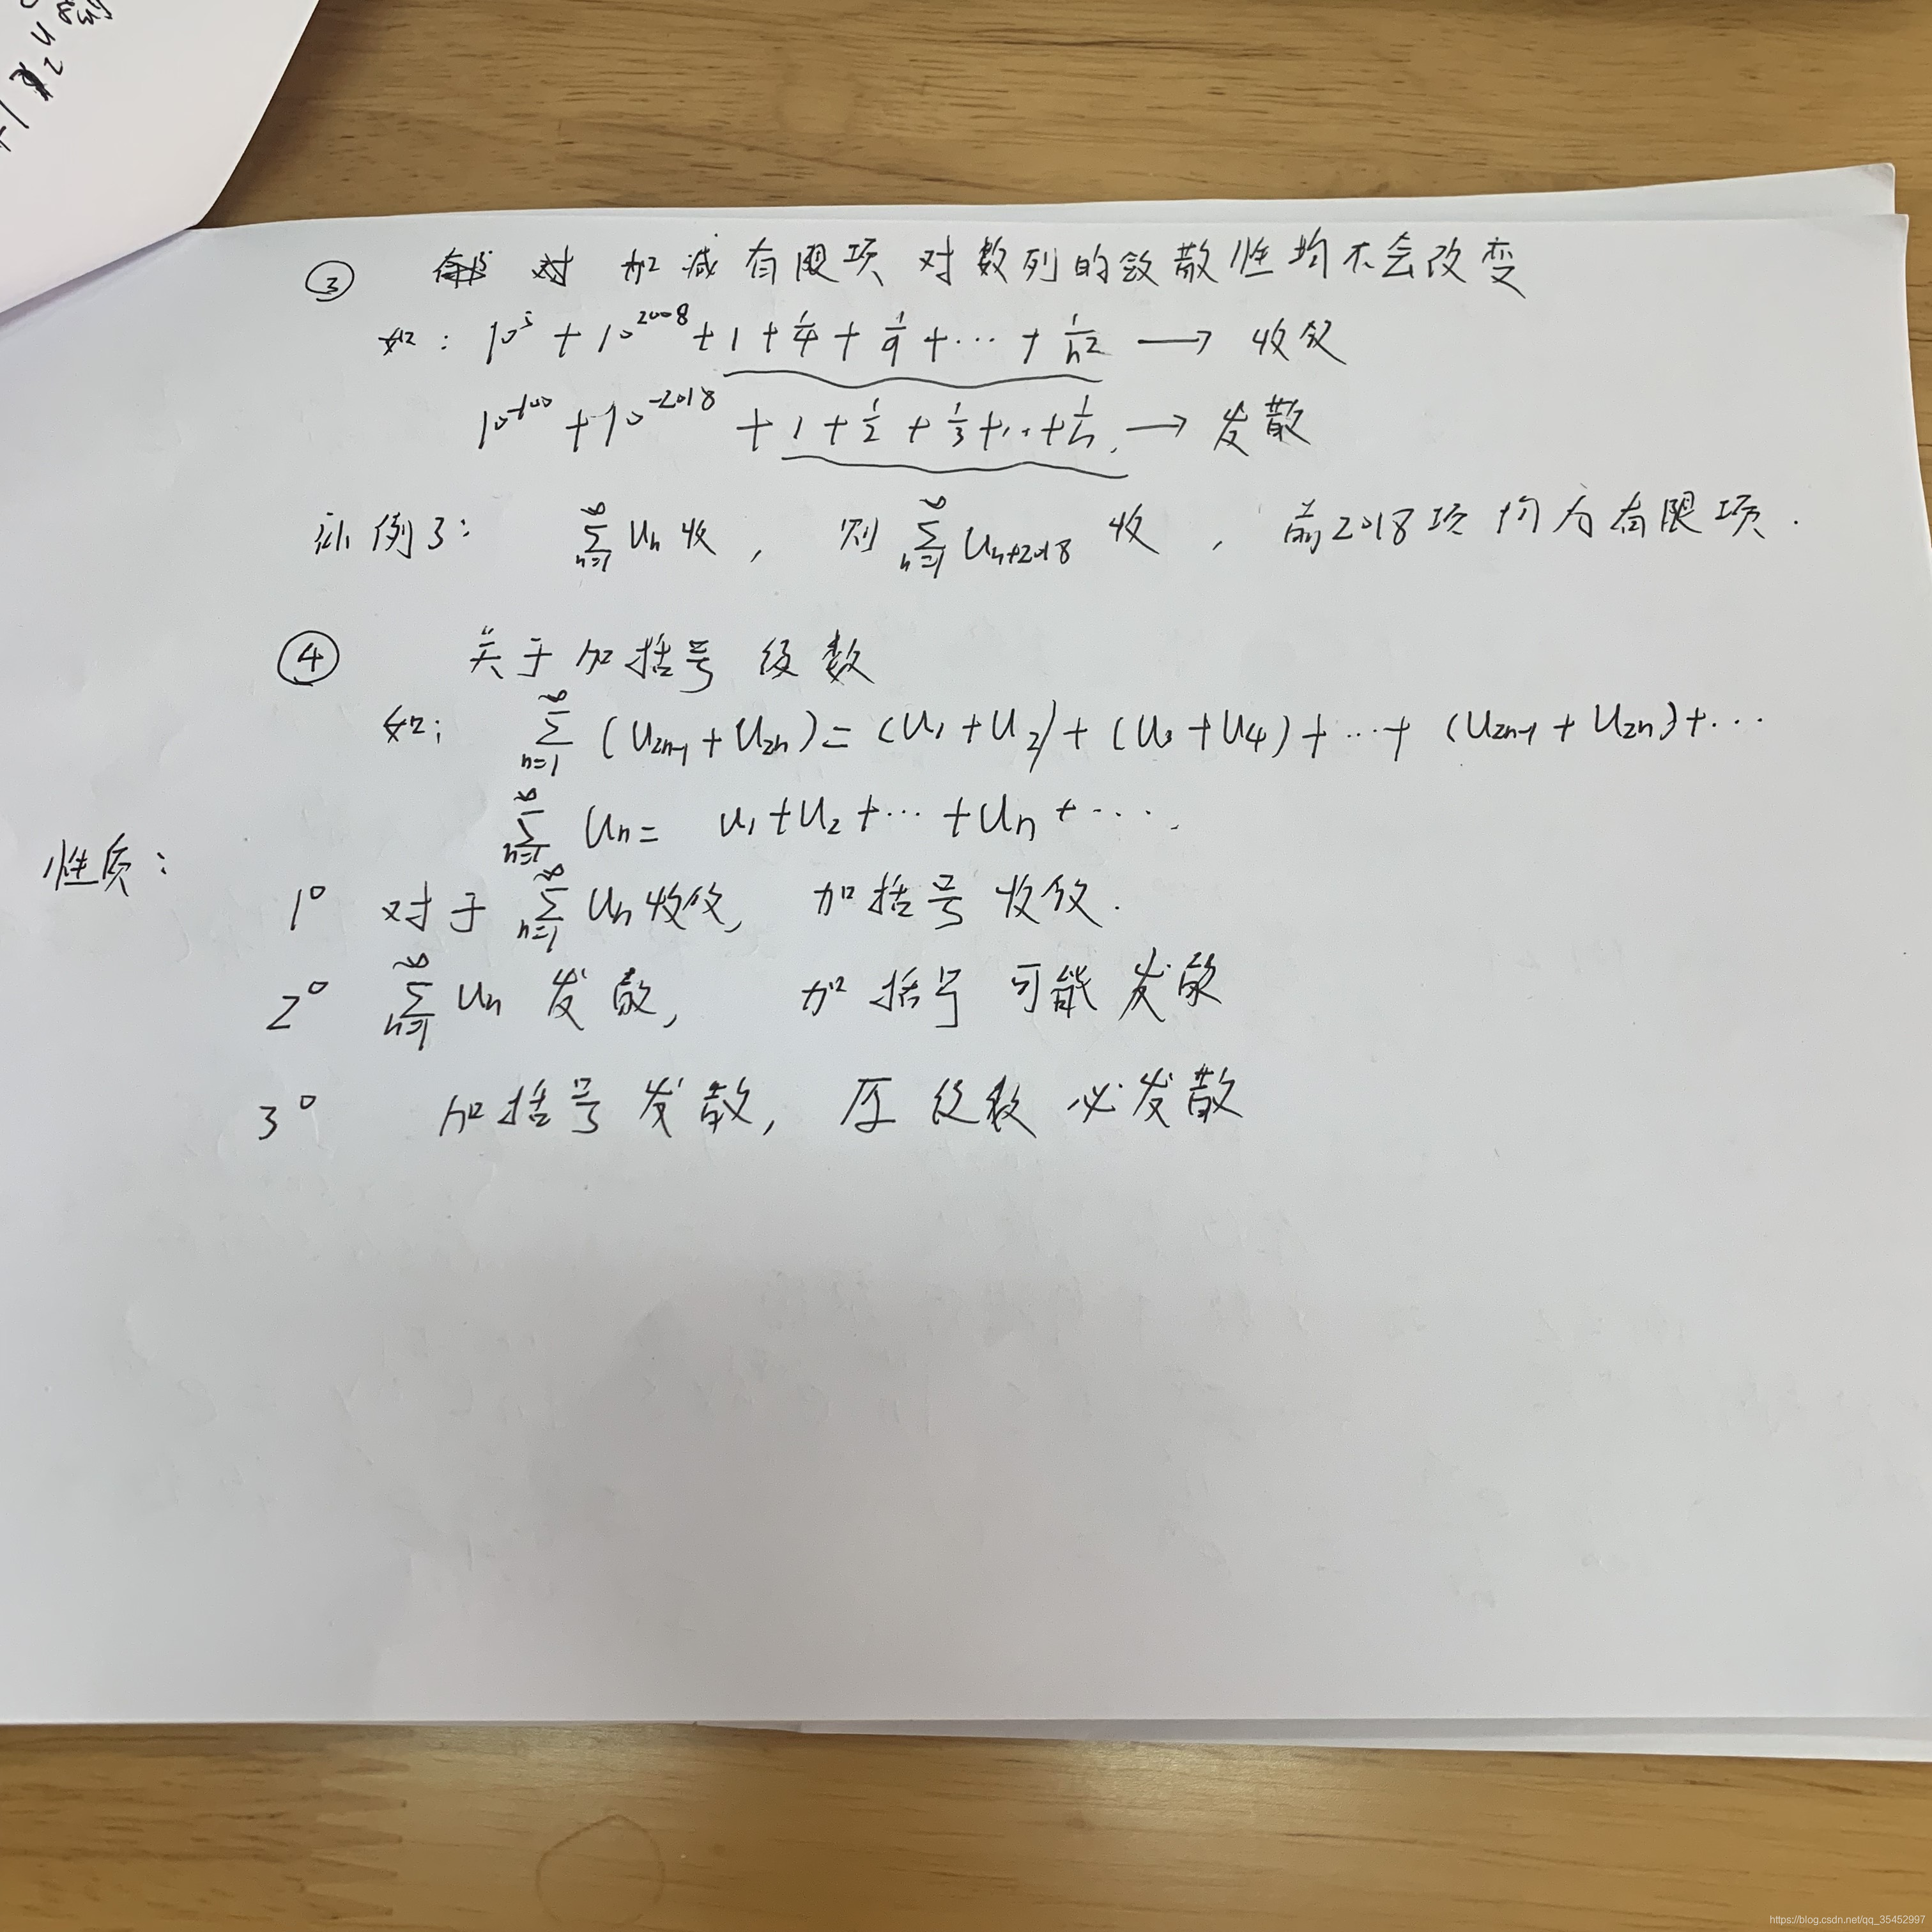 ③ 对 加减有限项 对数列的敛散性均不会改变
如: 10⁵ + 10²⁰⁰⁸ + 1 + 1/4 + 1/9 + ⋯ + 1/n² → 收敛
10⁻¹⁰⁰ + 10⁻²⁰¹⁸ + 1 + 1/2 + 1/3 + ... + 1/n → 发散
补例3: ∑_{n=1}^{∞} Uₙ 收, 则 ∑_{n=1}^{∞} Uₙ₊₂₀₁₈ 收, 前2018项均为有限项.
④ 关于加括号级数
如: ∑_{n=1}^{∞} (U₂ₙ₋₁ + U₂ₙ) = (U₁ + U₂) + (U₃ + U₄) + ⋯ + (U₂ₙ₋₁ + U₂ₙ) + ⋯
∑_{n=1}^{∞} Uₙ = U₁ + U₂ + ⋯ + Uₙ + ⋯.
性质:
1° 对于 ∑_{n=1}^{∞} Uₙ 收敛, 加括号收敛.
2° ∑_{n=1}^{∞} Uₙ 发散, 加括号可能发散
3° 加括号发散, 原级数必发散
https://blog.csdn.net/qq_35452997